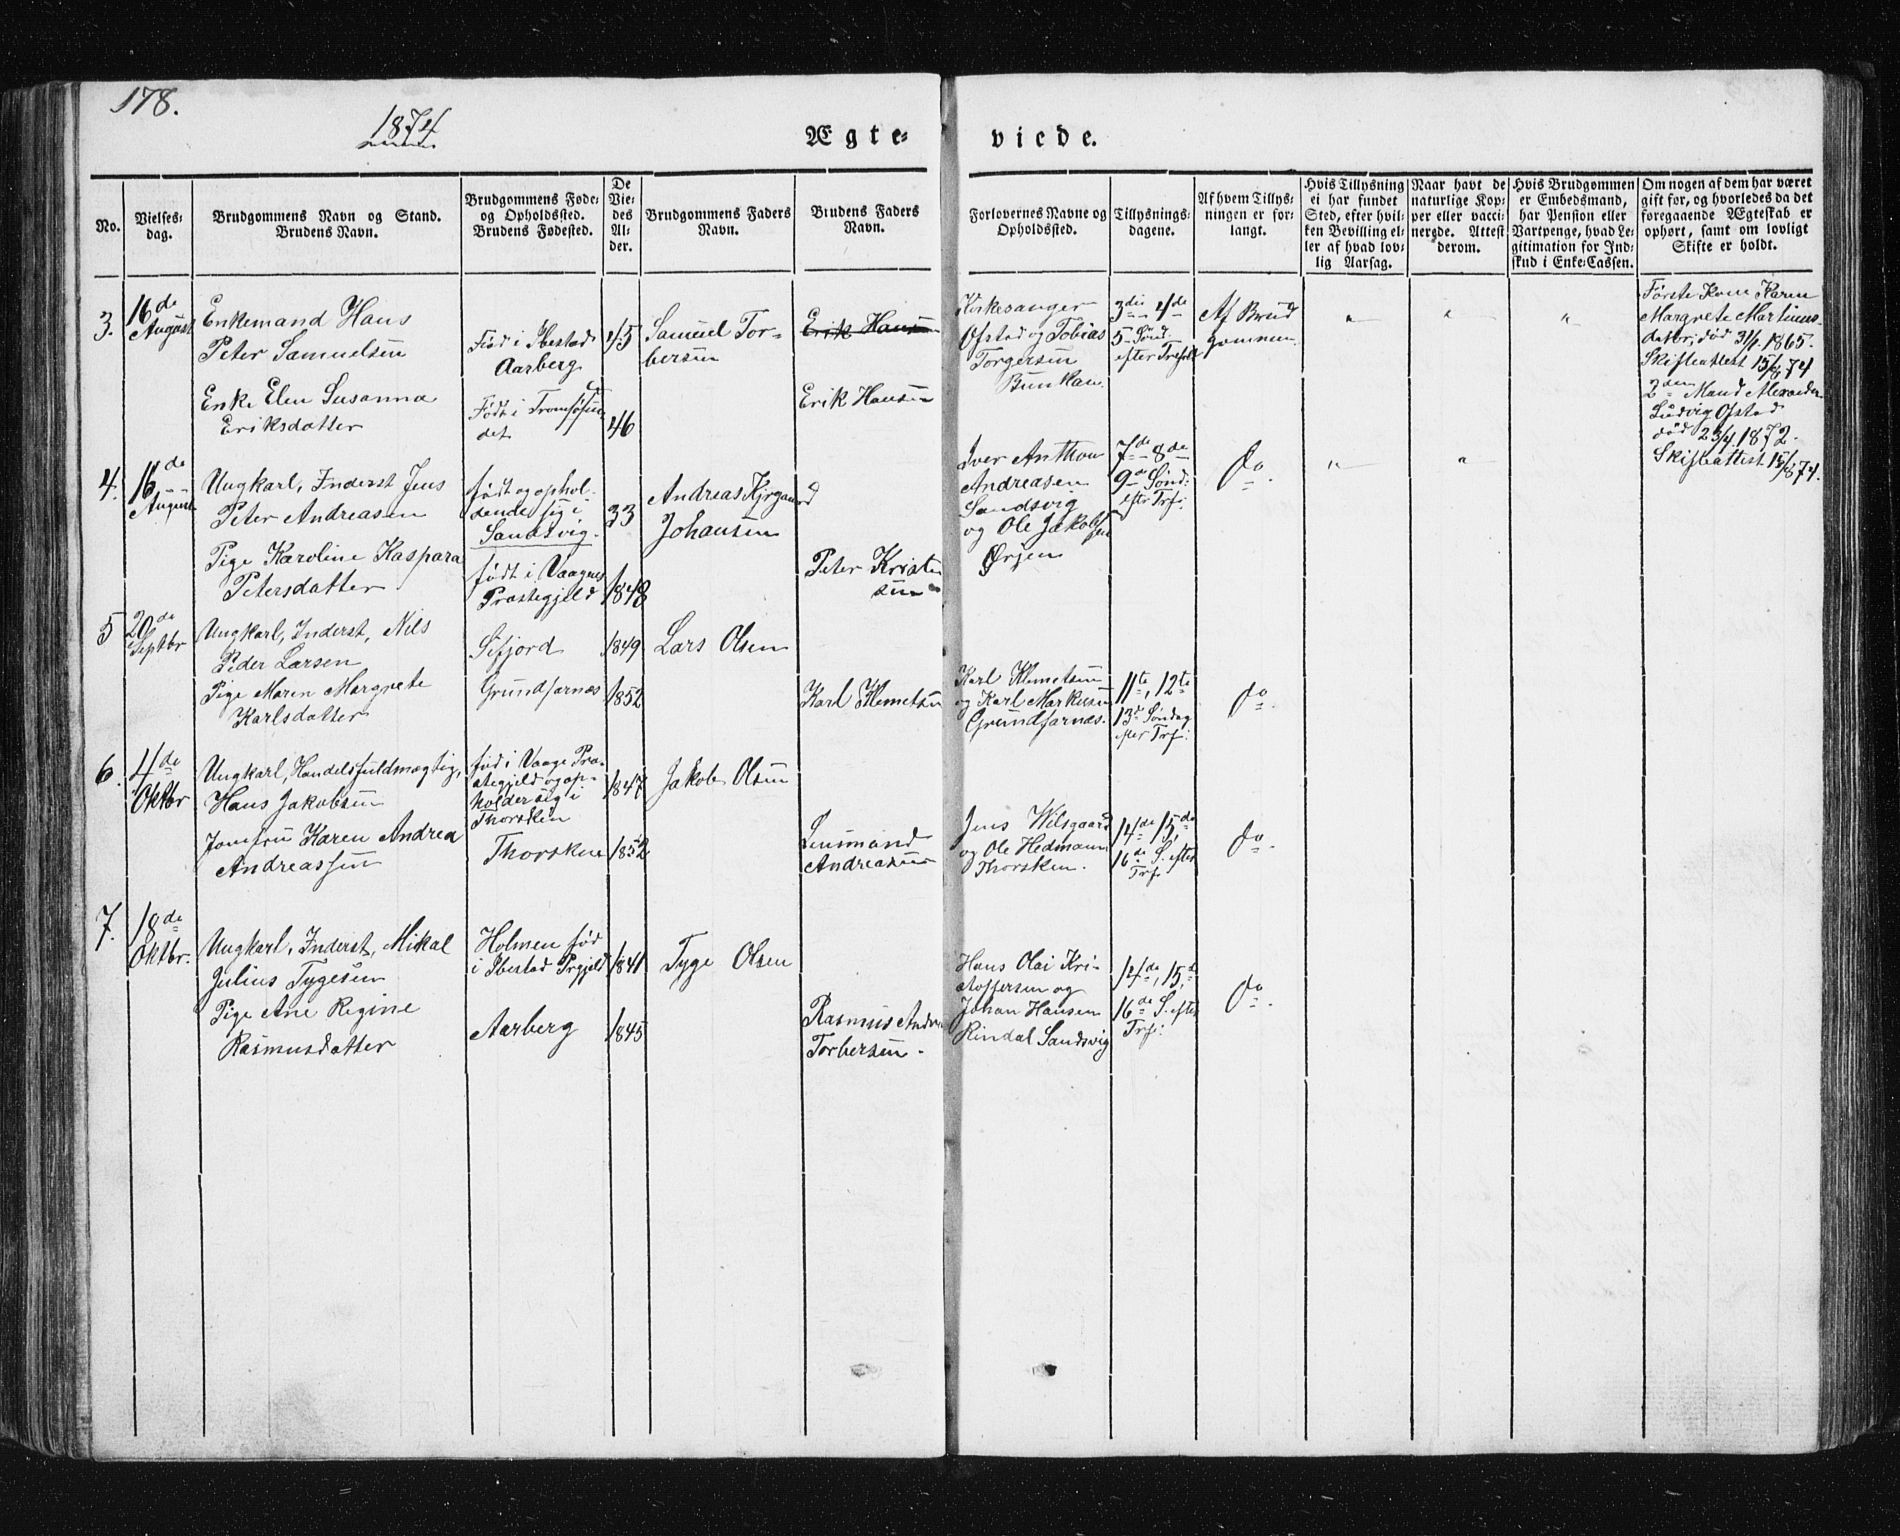 178.
1874
Ægte-
viede.
No.
Vielses-
dag.
Brudgommens Navn og Stand.
Brudens Navn.
Brudgommens Føde-
og Opholdssted.
Brudens Fødested.
De
Vie-
des
Al-
der.
Brudgommens Faders
Navn.
Brudens Faders
Navn.
Forlovernes Navne og
Opholdssted.
Tillysnings-
dagene.
Af hvem Tillys-
ningen er for-
langt.
Hvis Tillysning
ei har fundet
Sted, efter hvil-
ken Bevilling el-
ler af hvad lov-
lig Aarsag.
Naar havt de
naturlige Kop-
per eller vacci-
nerede. Attest
derom.
Hvis Brudgommen
er Embedsmand,
har Pension eller
Vartpenge, hvad Le-
gitimation for Ind-
skud i Enke-Cassen.
Om nogen af dem har været
gift før, og hvorledes da det
foregaaende Ægteskab er
ophørt, samt om lovligt
Skifte er holdt.
3.
16de
August
Enkemand Hans
Peter Samuelsen
Enke Elen Susanna
Eriksdatter
Fød i Ibestad
Aarberg
Født i Tromsøsun
det
45
46
Samuel Tor-
bersen
Erik Hansen
Erik Hansen
Kirkesanger
Ofstad og Tobias
Torgersen
Bunkan.
3die 4de
5 Sønd
efter Trefold
Af Brud
gommen.
"
"
"
Første Kone Karen
Margrete Martinus-
datter, død 31/1 1865.
Skifteattest 15/8 74
2den Mand Alexander
Ludvig Ofstad
død 23/4 1872.
Skifteattest 15/8 74.
4.
16de
August
Ungkarl, Inderst Jens
Peter Andreasen
Pige Karoline Kaspara
Petersdatter
født og ophol-
dende sig i
Sandsvig.
født i Vaagnes
Præstegjeld
33
1848
Andreas Kjrgaard
Johansen
Peter Kristen
sen
Iver Anthon
Andreasen
Sandsvig
og Ole Jakobsen
Ørjen
7de 8de
9de Sønd:
efter Trf:
do
"
"
5
20de
Septbr
Ungkarl, Inderst, Nils
Peder Larsen
Pige Maren Margrete
Karlsdatter
Sifjord
Grundfarnæs
1849
1852
Lars Olsen
Karl Klemetsen
Karl Klemetsen
og Karl Markusen
Grundfarnæs.
11te, 12te
13de Søndag
efter Trf:
do
6.
4de
Oktbr
Ungkarl, Handelsfuldmægtig,
Hans Jakobsen
Jomfru Karen Andrea
Andreassen
fød i Vaage Præ-
stegjeld og op-
holder sig i
Thorsken
Thorsken
1847
1852
Jakob Olsen
Lensmand
Andreasen
Jens Wilsgaard
og Ole Hedmann
Thorsken.
14de 15de
16de S. efter
Trf.
do
7.
18de
Oktbr.
Ungkarl, Inderst, Mikal
Julius Tygesen
Pige Ane Regine
Rasmusdatter
Holmen fød
i Ibestad Prgjeld
Aarberg
1841
1845
Tyge Olsen
Rasmus Andreas
Torbersen.
Hans Olai Kri-
stoffersen og
Johan Hansen
Rindal Sandsvig
14de, 15de
16de S. efter
Trf:
do